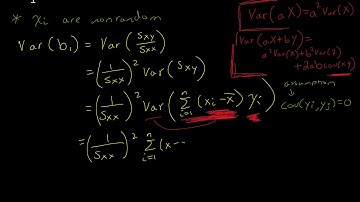 * xi are nonrandom
Var(b₁) = Var(Sxy/Sxx)
= (1/Sxx)² Var(Sxy)
= (1/Sxx)² Var(∑ⁿᵢ₌₁ (xi - x̄) yi)
= (1/Sxx)² ∑ⁿᵢ₌₁ (x--
Var(aX) = a²Var(X)
Var(aX+bY) =
a²Var(X)+b²Var(Y)
+2abcov(X,Y)
assumption
↓
cov(yi,yj)=0